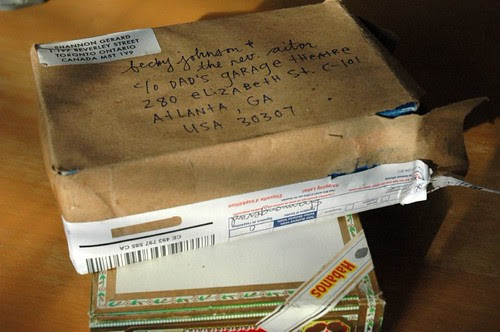 SHANNON GERARD
1-199 BEVERLEY STREET
TORONTO ONTARIO
CANADA M5T 1Y9
becky johnson +
the rev. aitor
c/o DAD'S GARAGE THEATRE
280 ELIZABETH St. C-101
ATLANTA, GA
USA 30307
Shipping Label
Étiquette d'expédition
CE 493 797 585 CA
Habanos